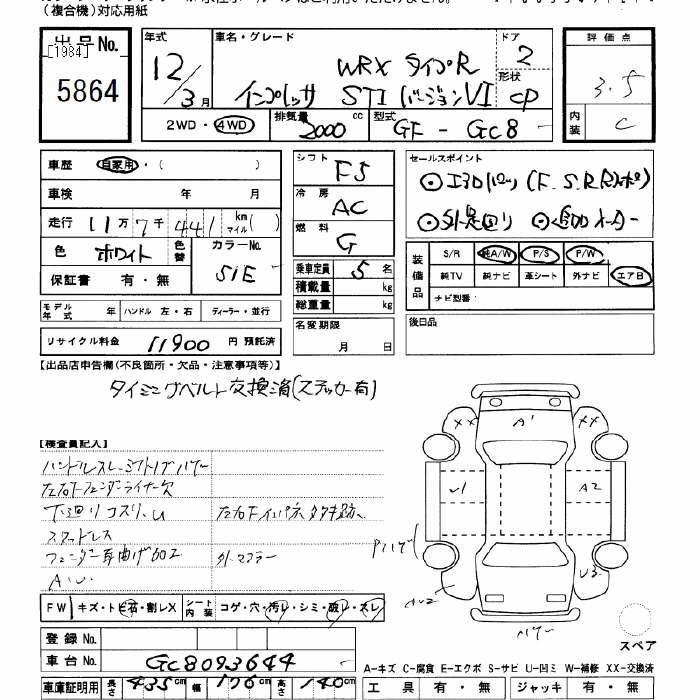 (複合機)対応用紙
出品No.
[1984]
5864
年式 車名・グレード ドア 評価点
12/3月 WRX タイプR 2 3.5
インプレッサ STI バージョンVI 形状 CP
2WD・4WD 排気量 2000 cc 型式 GF - GC8
内装 C
車歴 自家用・( )
シフト F5
セールスポイント
車検 年 月
冷房 AC
走行 11万7千441km マイル( )
燃料 G
色 ホワイト 色替 カラーNo. 51E
保証書 有・無
乗車定員 5名
積載量 kg
総重量 kg
装備品 S/R 純A/W P/S P/W
純TV 純ナビ 革シート 外ナビ エアB
ナビ型番:
モデル年式 年 ハンドル 左・右 ディーラー・並行
名変期限 月 日
後日品
リサイクル料金 11900 円 預託済
【出品店申告欄(不良箇所・欠品・注意事項等)】
タイミングベルト交換済(ステッカー有)
【検査員記入】
ハンドルスレ シフトノブハゲ
左右Fフェンダーライナー欠
下廻りコスリ、U
スタッドレス
フェンダー耳曲げ加工 外マフラー
A、U
A' XX XX
U1 A2
Pハゲ
AU2 U3
FW キズ・トビ石・割レX シート内装 コゲ・穴・汚レ・シミ・破レ・スレ
登録No.
車台No. GC8093644
車庫証明用 長さ 435cm 幅 176cm 高さ 140cm
スペア
A-キズ C-腐食 E-エクボ S-サビ U-凹ミ W-補修 XX-交換済
工具 有・無 ジャッキ 有・無